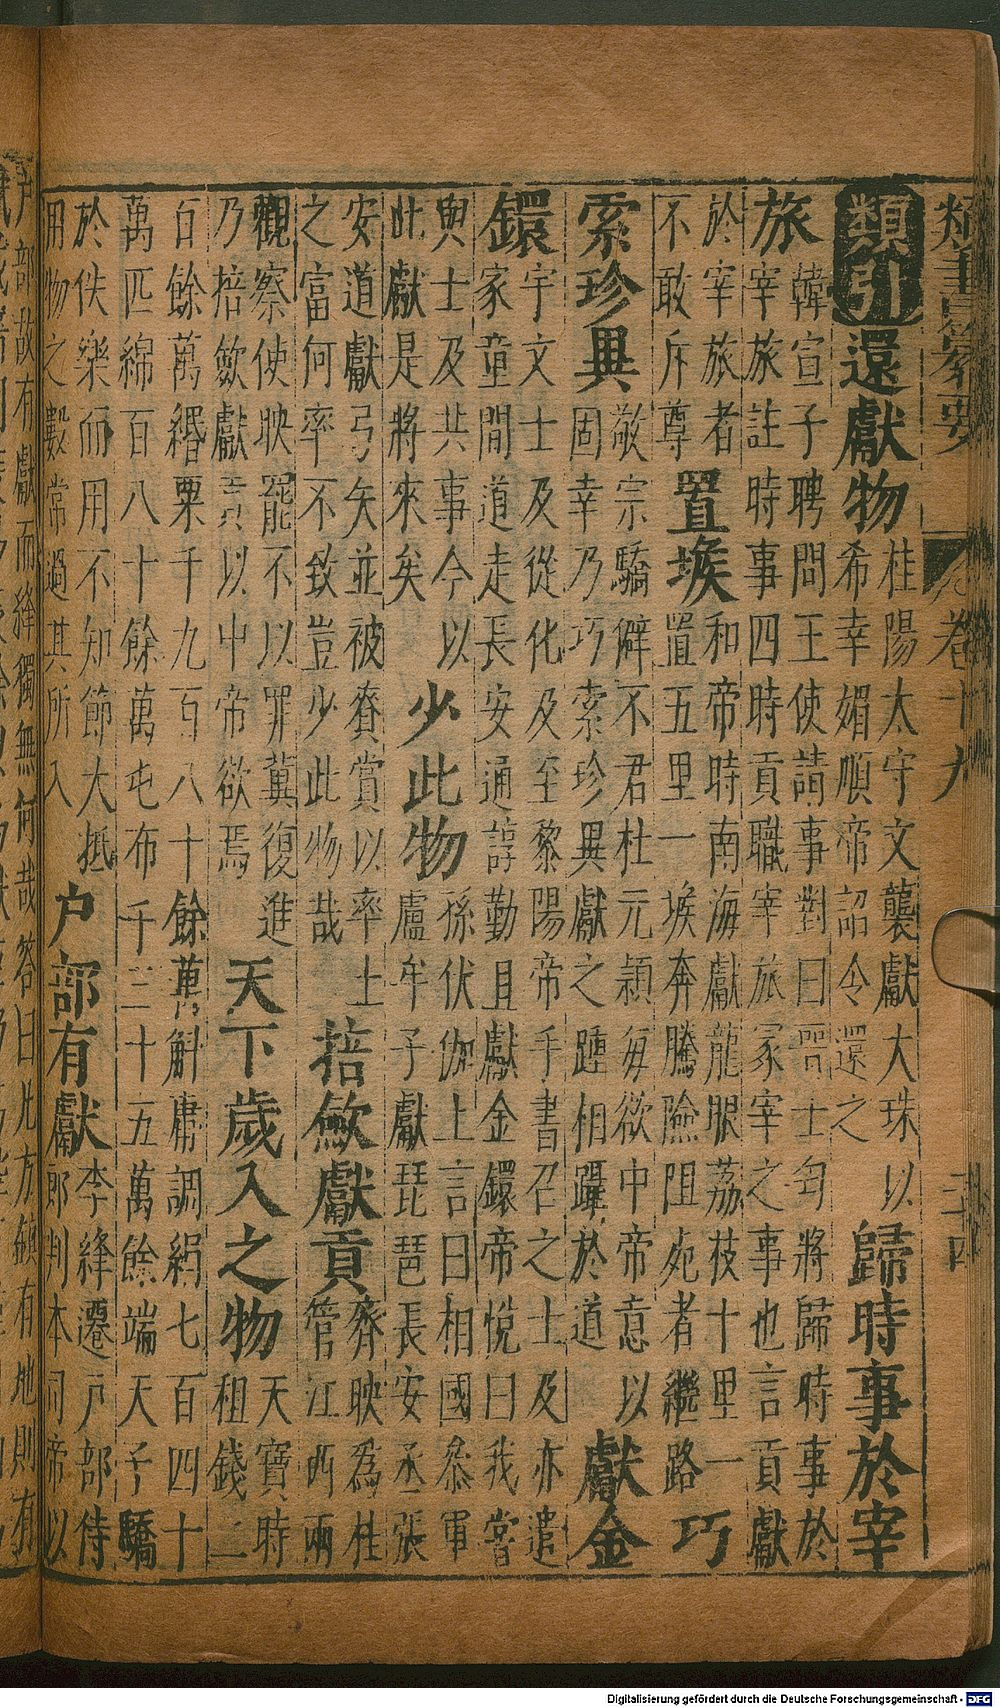 卷十九
類引還獻物
桂陽太守文襲獻大珠以
希幸媚順帝詔令還之
歸時事於宰
旅
韓宣子聘問王使請事對曰晉士匄將歸時事於
宰旅註時事四時貢職宰旅冢宰之事也言貢獻
於宰旅者
不敢斥尊
置堠
和帝時南海獻龍眼荔枝十里一
置五里一堠奔騰險阻死者繼路
巧
索珍異
敬宗驕僻不君杜元穎每欲中帝意以
固幸乃巧索珍異獻之踵相躡於道
獻金
鐶
宇文士及從化及至黎陽帝手書召之士及亦遣
家童間道走長安通諄勤且獻金鐶帝悅曰我嘗
與士及共事今以
此獻是將來矣
少此物
孫伏伽上言曰相國叅軍
盧牟子獻琵琶長安丞張
安道獻弓矢並被賚賞以率土
之富何率不致豈少此物哉
掊斂獻貢
齊映為桂
管江西兩
觀察使映罷不以罪冀復進
乃掊斂獻貢以中帝欲焉
天下歲入之物
天寶時
租錢二
百餘萬緡粟千九百八十餘萬斛庸調絹七百四十
萬匹綿百八十餘萬屯布千三十五萬餘端天子驕
於佚樂而用不知節大抵
用物之數常過其所入
户部有獻
李絳遷戸部侍
郎判本司帝以
户部故有獻而絳獨無何哉答曰凡方鎮有地則有